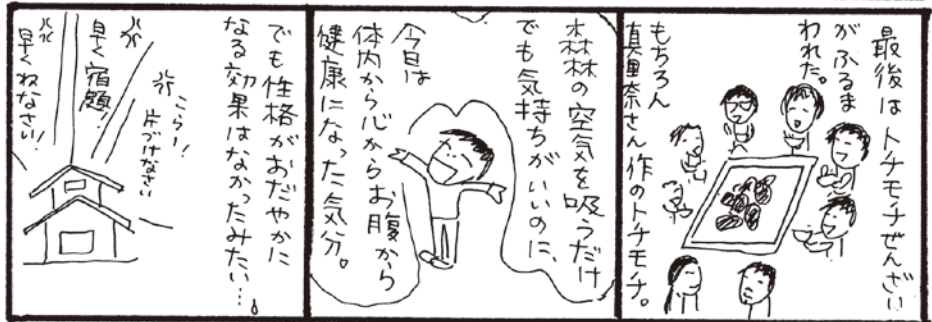 最後はトチモチぜんざい
がふるま
われた。
もちろん
真里奈さん作のトチモチ。
森林の空気を吸うだけ
でも気持ちがいいのに、
今日は
体内から心からお腹から
健康になった気分。
でも性格がおだやかに
なる効果はなかったみたい…。
こらー!
片づけなさい
早く宿題!
早くねなさい!